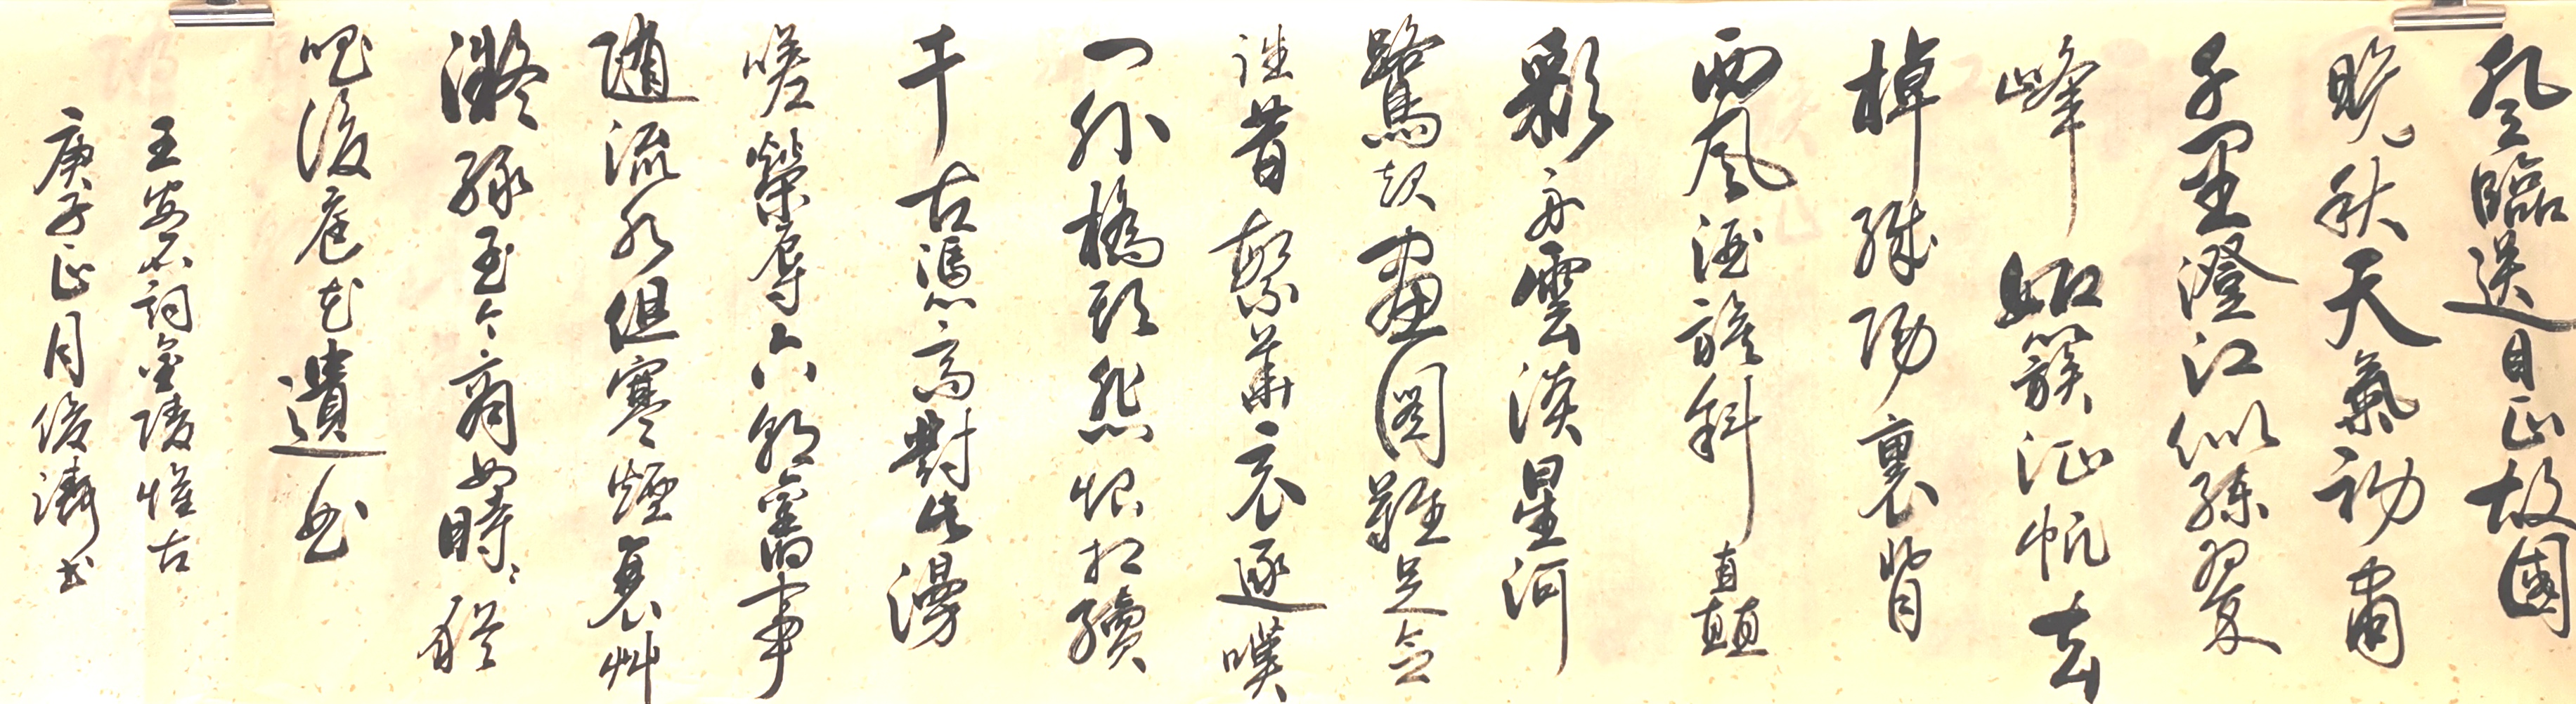 登臨送目正故國
晚秋天氣初肅
千里澄江似練翠
峰如簇征帆去
棹殘陽裏背
西風酒旗斜矗
彩舟雲淡星河
鷺起畫圖難足念
往昔繁華競逐嘆
門外樓頭悲恨相續
千古憑高對此漫
嗟榮辱六朝舊事
隨流水但寒煙衰艸
凝綠至今商女時時猶
唱後庭花遺曲
王安石詞金陵懷古
庚子正月俊濤書